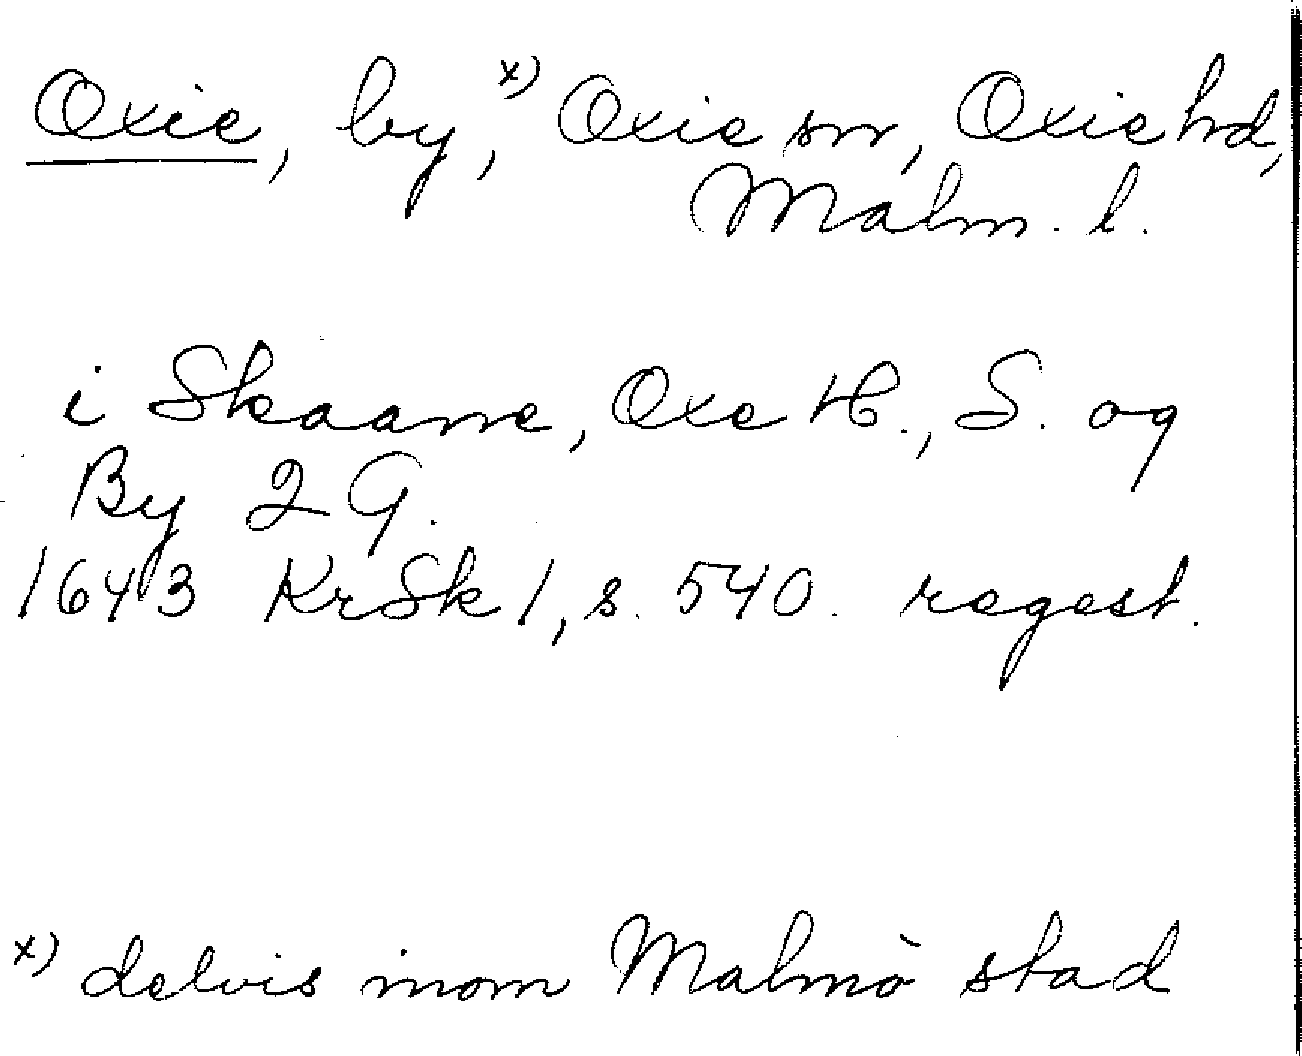 Oxie, by,x) Oxie sn, Oxie hd,
Malm. l.
i Skaane, Oxe H., S. og
By 2 G.
1643 KrSk 1, s. 540. regest.
x) delvis inom Malmö stad